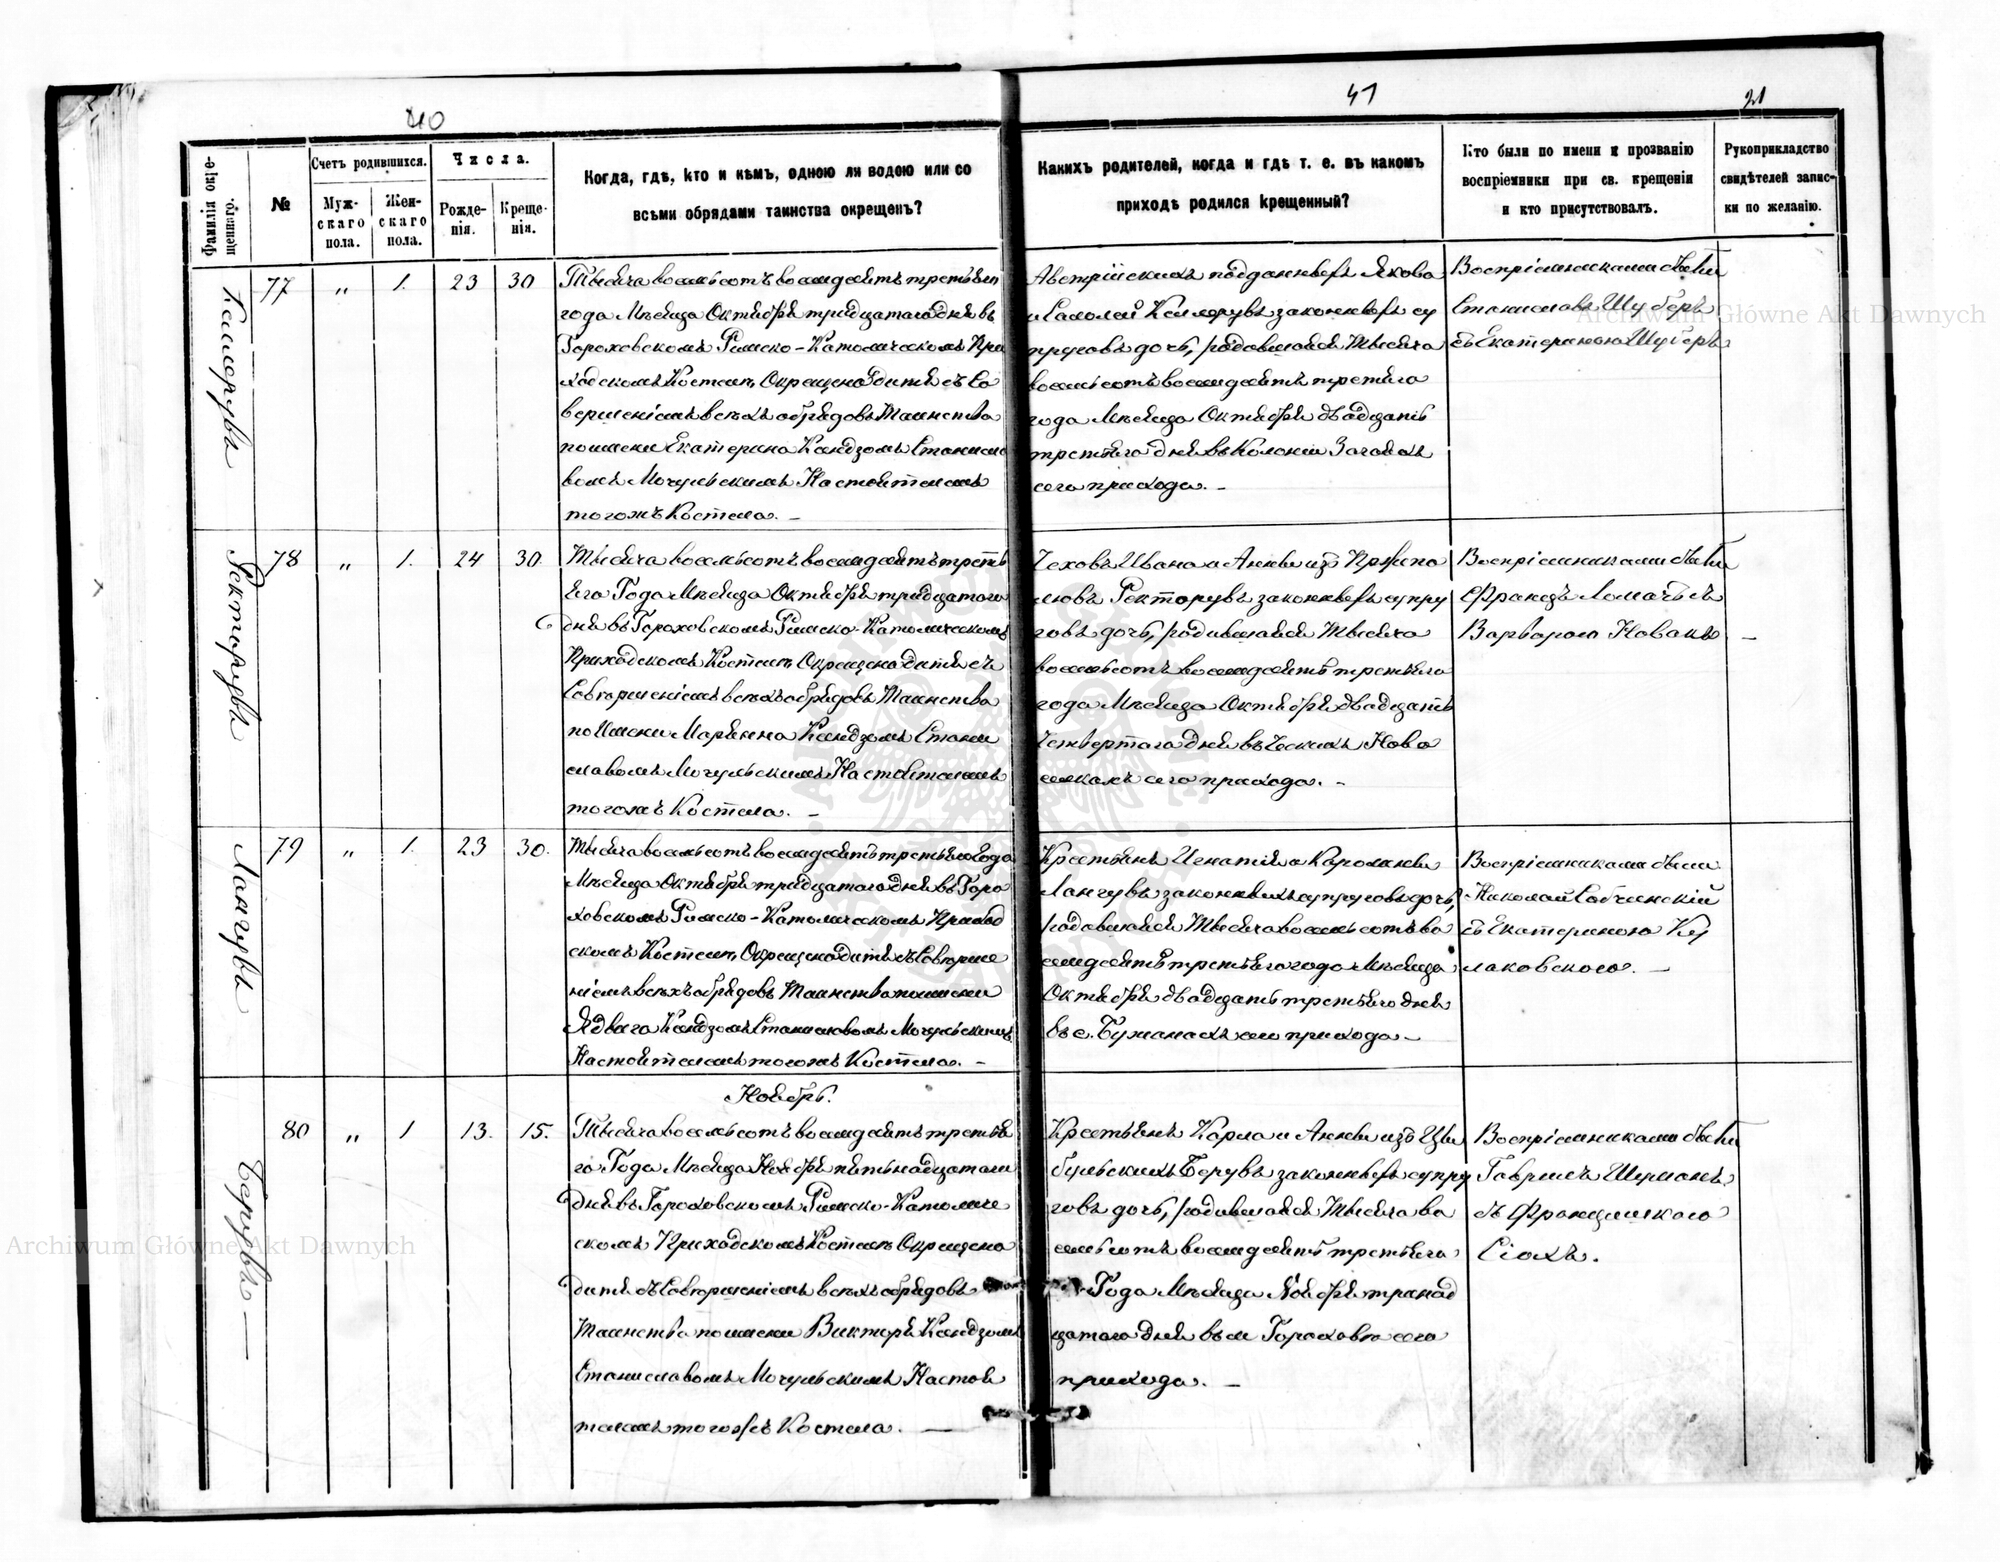 40
41
21
Фамилія окре-
щеннаго.
№
Счетъ родившихся.
Муж-
скаго
пола.
Жен-
скаго
пола.
Числа.
Рожде-
нія.
Креще-
нія.
Когда, гдѣ, кто и кѣмъ, одною ли водою или со
всѣми обрядами таинства окрещенъ?
Какихъ родителей, когда и гдѣ т. е. въ какомъ
приходѣ родился крещенный?
Кто были по имени и прозванію
воспріемники при св. крещеніи
и кто присутствовалъ.
Рукоприкладство
свидѣтелей запис-
ки по желанію.
77
"
1.
23
30
Тысяча восемьсотъ восемдесятъ третьяго
года Мѣсяца Октября тридцатаго дня въ
Гороховскомъ Римско-Католическомъ При
ходскомъ Костелѣ Окрещено дитя съ Со
вершеніемъ всѣхъ обрядовъ Таинства
по имени Екатерина Ксендзомъ Станисла
вомъ Мочульскимъ Настоятелемъ
тогожъ Костела. –
Австрійскихъ подданныхъ Якова
и Саломеи законныхъ су
пруговъ дочь, родившаяся Тысяча
восемьсотъ восемдесятъ третьяго
года Мѣсяца Октября двадцать
третьяго дня въ Колоніи
сего прихода. –
Воспріемниками были
Станиславъ Шуберъ
съ Екатериною Шуберъ
Ректорувъ
78
"
1.
24
30.
Тысяча восемьсотъ восемдесятъ треть
яго Года Мѣсяца Октября тридцатаго
дня въ Гороховскомъ Римско-Католическомъ
Приходскомъ Костелѣ Окрещено дитя съ
Совершеніемъ всѣхъ обрядовъ Таинства
по Имени Маріянна Ксендзомъ Стани
славомъ Мочульскимъ Настоятелемъ
тогожъ Костела. –
Чеховъ Ивана и Анны изъ
Ректорувъ законныхъ супру
говъ дочь, родившаяся Тысяча
восемьсотъ восемдесятъ третьяго
года Мѣсяца Октября двадцать
четвертаго дня въ Ческихъ Ново
сего прихода. –
Воспріемниками были
Францъ съ
Варварою Новакъ –
Лангувъ
79
"
1
23
30.
Тысяча восемьсотъ восемдесятъ третьяго Года
Мѣсяца Октября тридцатаго дня въ Горо
ховскомъ Римско-Католическомъ Приход
скомъ Костелѣ Окрещено дитя съ Соверше
ніемъ всѣхъ обрядовъ Таинства по имени
Ядвига Ксендзомъ Станиславомъ Мочульскимъ
Настоятелемъ тогожъ Костела. –
Крестьянъ Игнатія и Каролины
Лангувъ законныхъ супруговъ дочь,
родившаяся Тысяча восемьсотъ во
семдесятъ третьяго года Мѣсяца
Октября двадцать третьяго дня
въ с. Бужанахъ сего прихода –
Воспріемниками были
Николай Собчинскій
съ Екатериною Ку
лаковского. –
Ноябрь.
Берувъ –
80
"
1
13.
15.
Тысяча восемьсотъ восемдесятъ третья
го Года Мѣсяца Ноября пятьнадцатаго
дня въ Гороховскомъ Римско-Католиче
скомъ Приходскомъ Костелѣ Окрещено
дитя съ Совершеніемъ всѣхъ обрядовъ
Таинства по имени Викторія Ксендзомъ
Станиславомъ Мочульскимъ Настоя
телемъ тогожъ Костела. –
Крестьянъ Карла и Анны изъ Цы
бульскихъ Берувъ законныхъ супру
говъ дочь, родившаяся Тысяча во
семьсотъ восемдесятъ третьяго
Года Мѣсяца Ноября тринад
цатаго дня въ м. Гороховѣ сего
прихода. –
Воспріемниками были
Гавриелъ Шурманъ
съ Францишкою
Archiwum Główne Akt Dawnych
Archiwum Główne Akt Dawnych